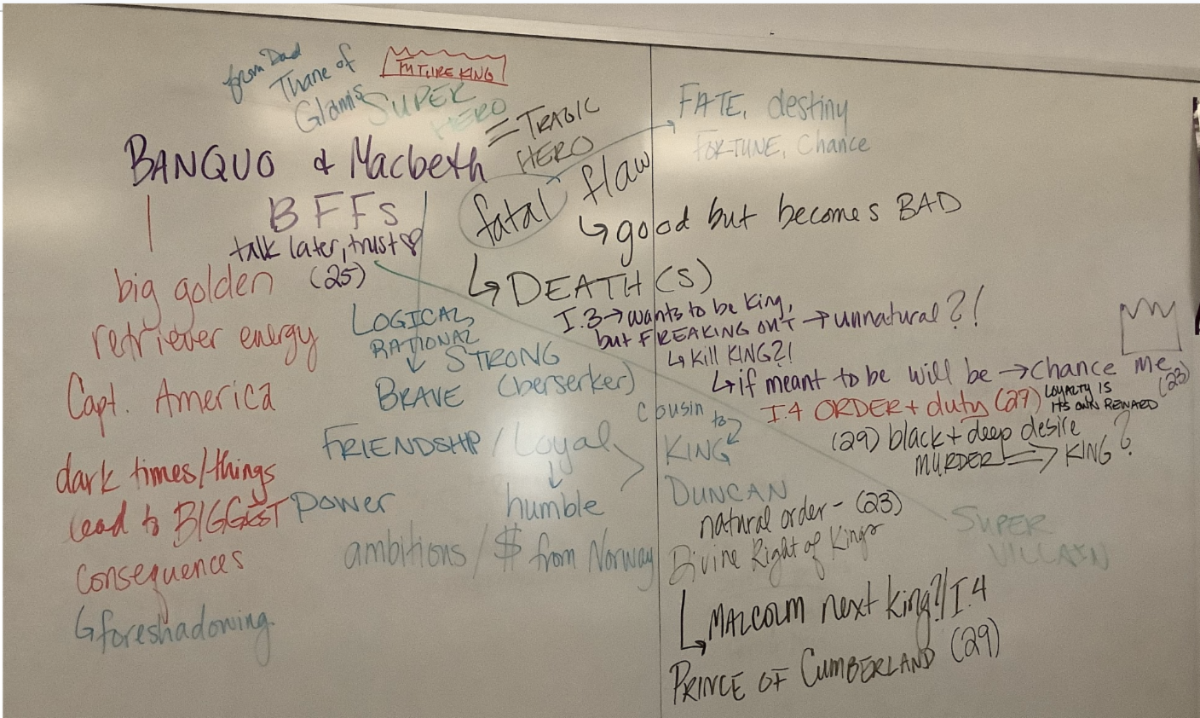 from Dad
Thane of
Glamis
FUTURE KING
SUPER
HERO
= TRAGIC
HERO
BANQUO & Macbeth
BFFs
talk later, trust
(25)
big golden
retriever energy
Capt. America
dark times/things
lead to BIGGEST
consequences
foreshadowing.
LOGICAL
RATIONAL
STRONG
BRAVE (berserker)
FRIENDSHIP / Loyal
humble
power
ambitions / $ from Norway
fatal flaw
FATE, destiny
FORTUNE, Chance
good but becomes BAD
DEATH(S)
I.3 → wants to be king,
but FREAKING OUT → unnatural?!
kill KING?!
if meant to be will be → chance me
(23)
I.4 ORDER + duty (29) LOYALTY IS
ITS OWN REWARD
(29) black + deep desire
MURDER → KING?
cousin
to
KING
DUNCAN
natural order - (23)
Divine Right of Kings
MALCOLM next king?/I.4
PRINCE OF CUMBERLAND (29)
SUPER
VILLAIN